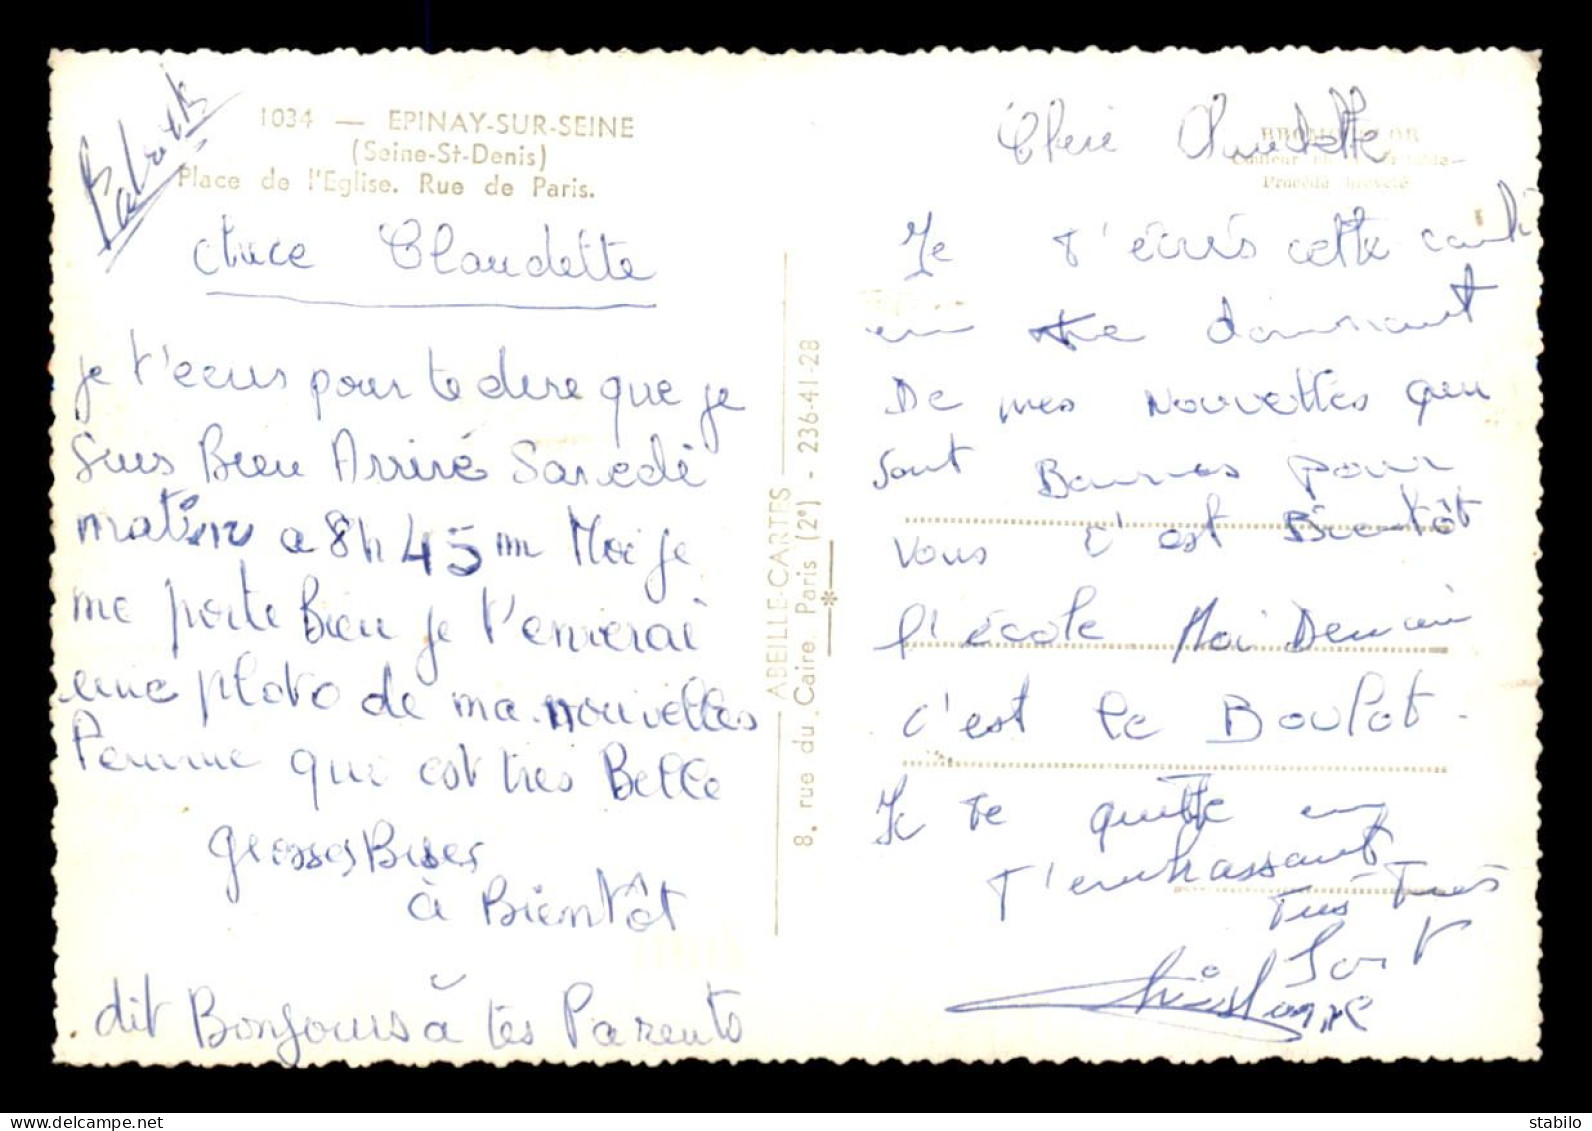 1034 — EPINAY-SUR-SEINE
(Seine-St-Denis)
Place de l'Eglise. Rue de Paris.
Claudette
je t'ecris pour te dire que je
suis Bien Arrivé Samedi
matin a 8h 45 m Moi je
me porte Bien je t'enverai
une photo de ma nouvelles
Femme qui est tres Belle
grosses Bises
à Bientôt
dit Bonjours à tes Parents
ABEILLE-CARTES
8, rue du Caire, Paris (2e) - 236-41-28
BROMOCOLOR
Couleur
Procédé breveté
Cheri Claudette
Je t'écris cette carte
en te donnant
De mes Nouvelles qui
sont Bonnes pour
vous c'est Bientôt
l'école Moi Demain
c'est le Boulot.
Je te quitte en
T'embrassant
Tres Tres
Fort
Christianne